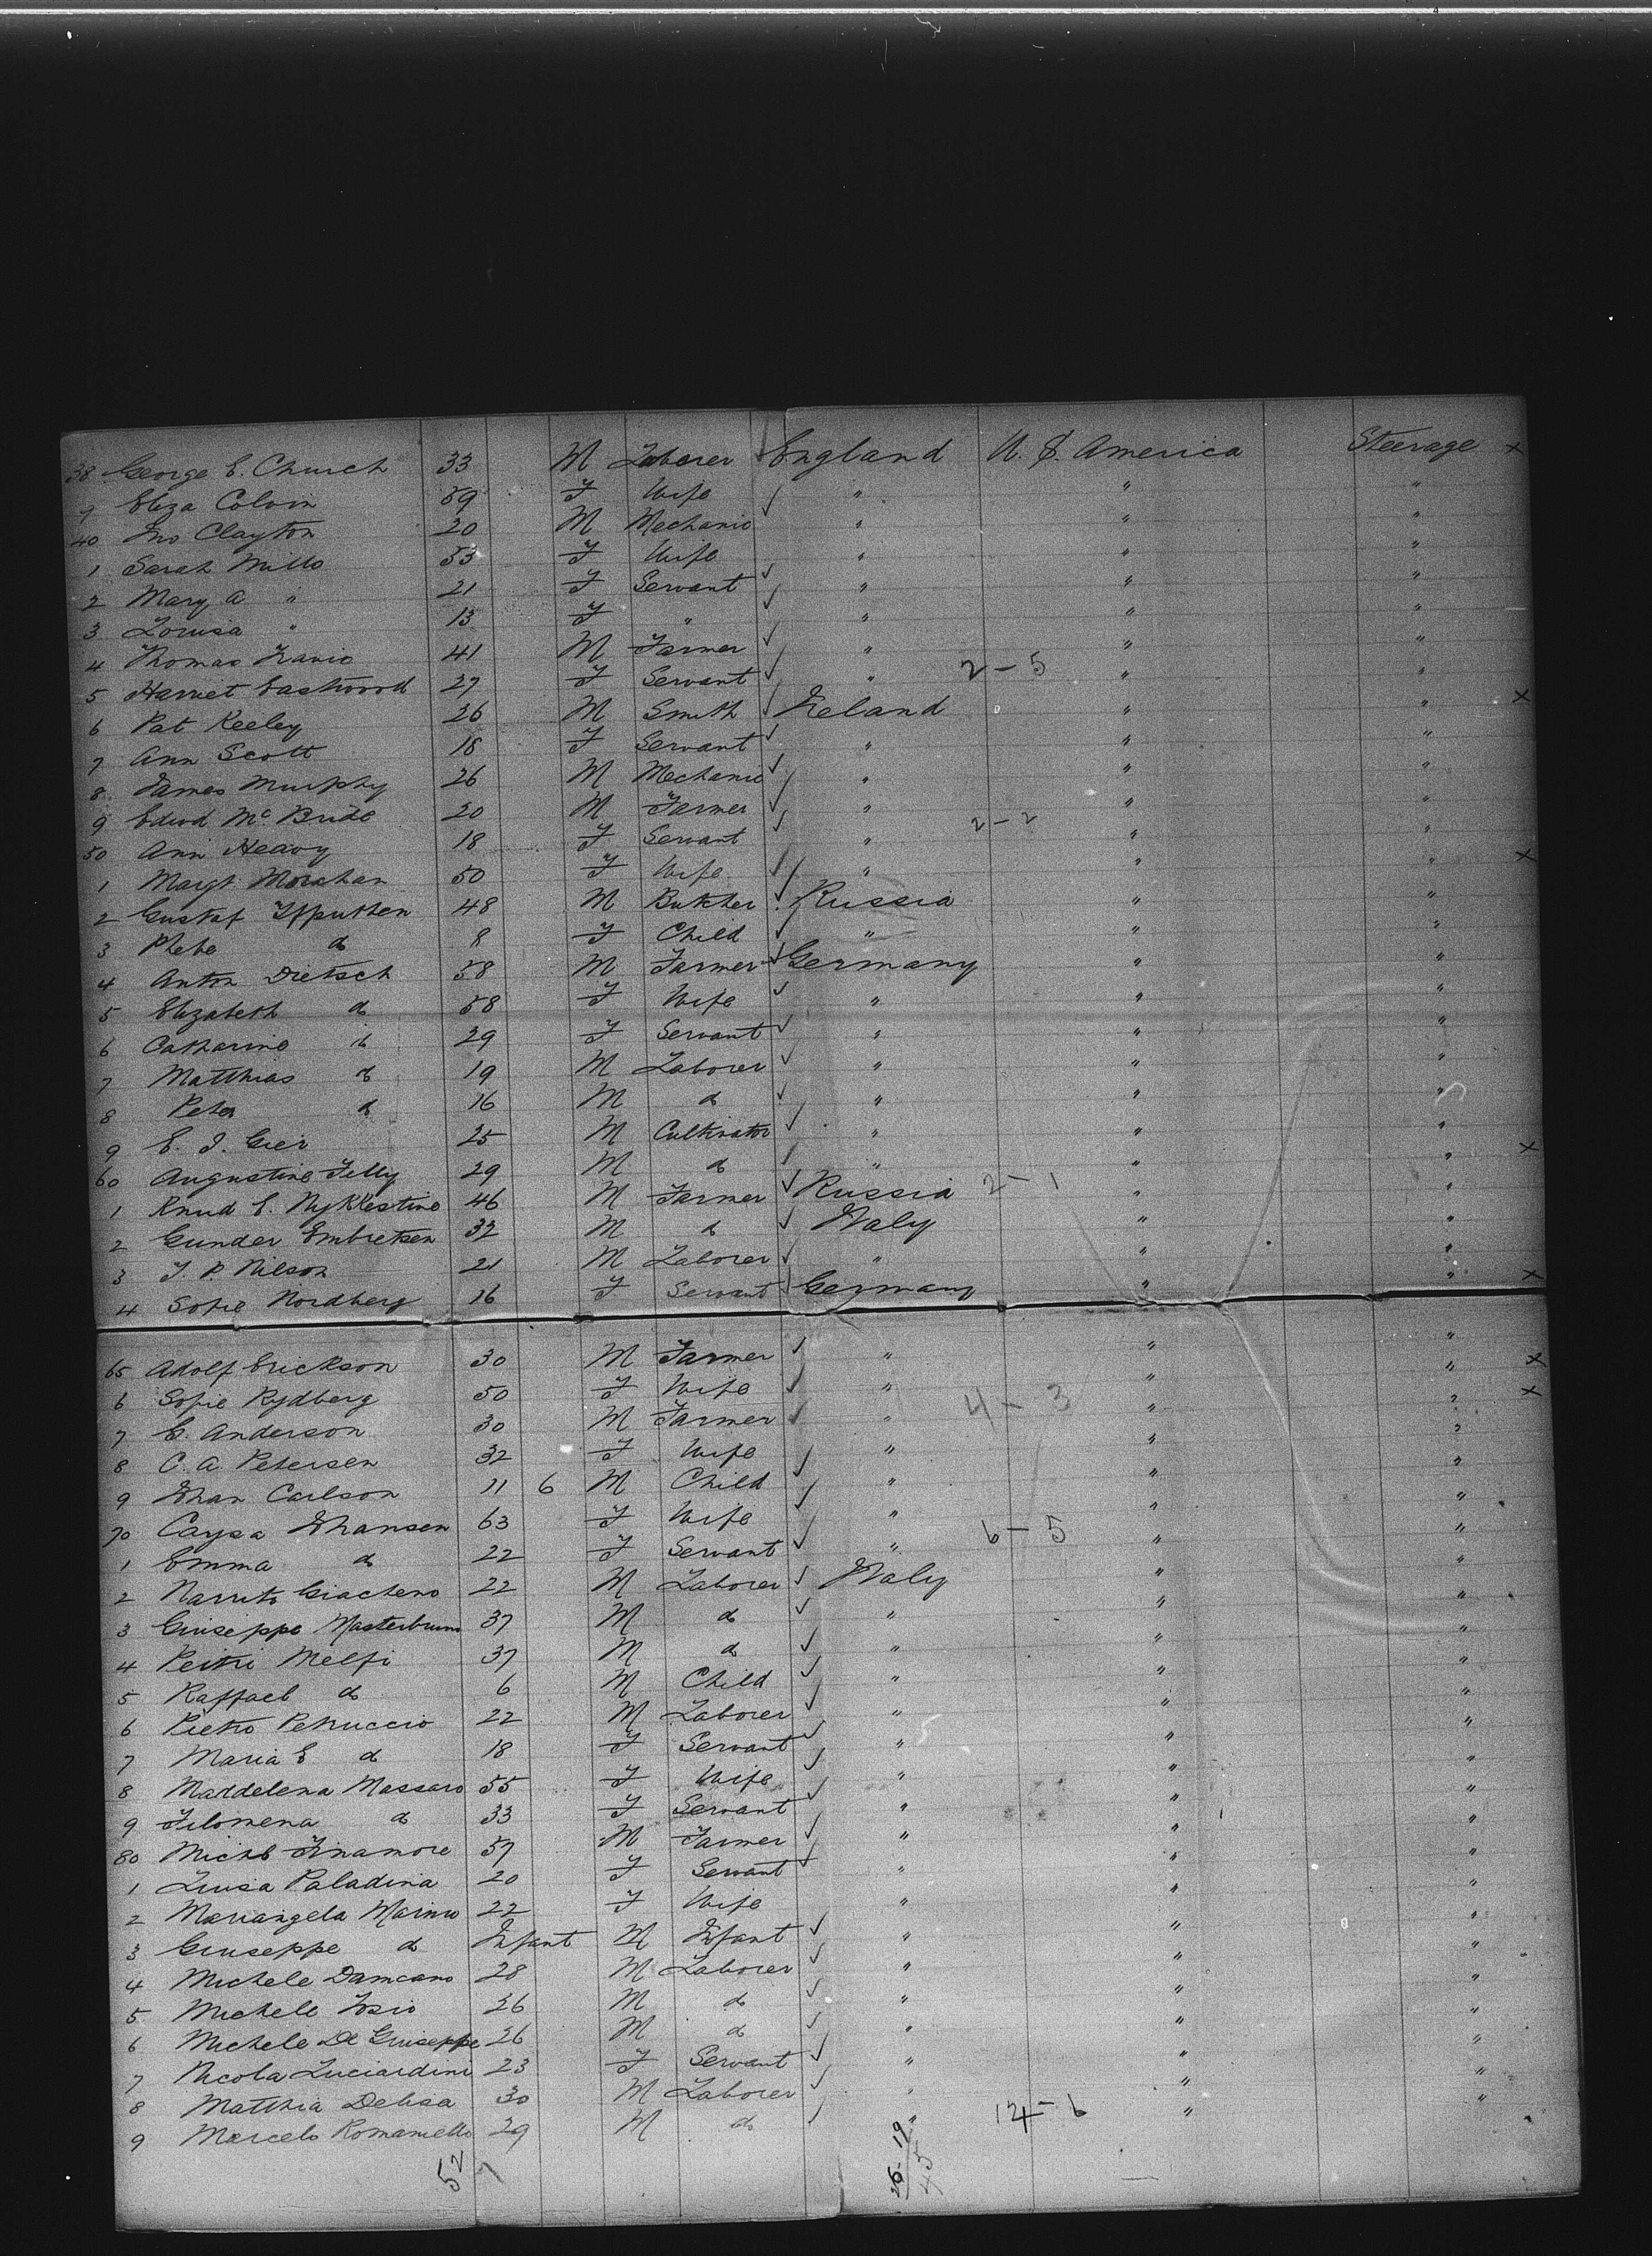 38 George E. Church 33 M Laborer England U. S. America Steerage ×
9 Eliza Colvin 59 F Wife ✓ " " "
40 Jno Clayton 20 M Mechanic " " "
1 Sarah Mills 53 F Wife " " "
2 Mary A " 21 F Servant ✓ " " "
3 Louisa " 13 F " ✓ " " "
4 Thomas 41 M Farmer ✓ " " "
5 Harriet Eastwood 27 F Servant ✓ " 2-5 " "
6 Pat Keeley 26 M Smith ✓ Ireland " " ×
7 Ann Scott 18 F Servant ✓ " " "
8 James Murphy 26 M Mechanic ✓ " " "
9 Edwd McBride 20 M Farmer ✓ " " "
50 Ann Heavy 18 F Servant ✓ " 2-2 " "
1 Margt Morahan 50 F Wife ✓ " " " ×
2 Gustaf 48 M Butcher ✓ Russia " "
3 Phebe do 8 F Child ✓ " " "
4 Anton Dietsch 58 M Farmer ✓ Germany " "
5 Elizabeth do 58 F Wife ✓ " " "
6 Catharine do 29 F Servant ✓ " " "
7 Matthias do 19 M Laborer ✓ " " "
8 Peter do 16 M do ✓ " " "
9 E. J. Gier 25 M Cultivator ✓ " " "
60 Augustine Felly 29 M do ✓ " " " ×
1 Knud E. Nykkestine 46 M Farmer ✓ Russia 2-1 " "
2 Gunder Embretsen 32 M do ✓ Italy " "
3 J. P. Nilson 21 M Laborer ✓ " " "
4 Sofie Nordberg 16 F Servant Germany " " ×
65 Adolf Erickson 30 M Farmer ✓ " " " ×
6 Sofie Rydberg 50 F Wife ✓ " 4-3 " " ×
7 C. Anderson 30 M Farmer ✓ " " "
8 C. A. Petersen 32 F Wife ✓ " " "
9 Johan Carlson 11 6 M Child ✓ " " "
70 Caysa Johansen 63 F Wife ✓ " " "
1 Emma do 22 F Servant ✓ " 6-5 " "
2 Giacheno 22 M Laborer ✓ Italy " "
3 Giuseppe 37 M do ✓ " " "
4 Melfi 37 M do ✓ " " "
5 Raffael do 6 M Child ✓ " " "
6 Pietro Petruccio 22 M Laborer ✓ " " "
7 Maria E do 18 F Servant ✓ " " "
8 Maddelena Massaro 55 F Wife ✓ " " "
9 Filomena do 33 F Servant ✓ " " "
80 Michl Finamore 57 M Farmer ✓ " " "
1 Luisa Paladina 20 F Servant ✓ " " "
2 Mariangela 22 F Wife " " "
3 Giuseppe do Infant M Infant ✓ " " "
4 Michele Damcano 28 M Laborer ✓ " " "
5 Michele 26 M do ✓ " " "
6 Michele De Giuseppe 26 M do ✓ " " "
7 Nicola Luciardini 23 F Servant ✓ " " "
8 Matthia Delisa 30 M Laborer ✓ " " "
9 Marcelo Romaniello 29 M do ✓ " 14-6 " "
52
26-19
45